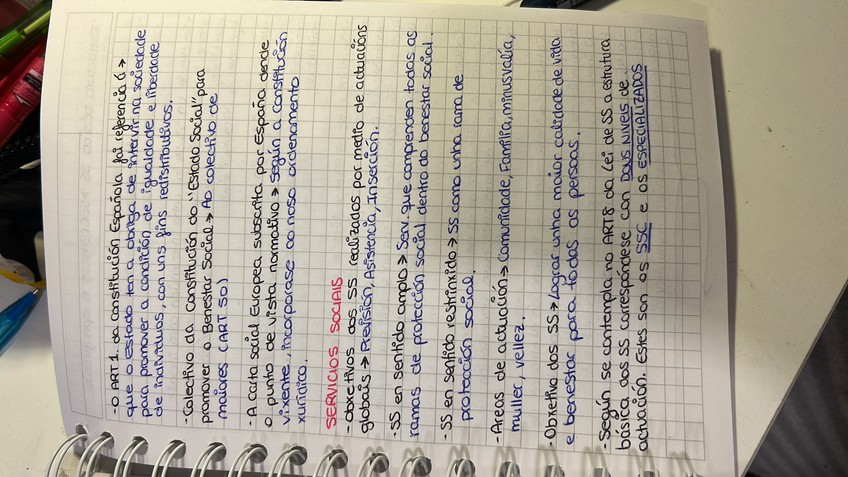 -O ART 1. da constitución Española fai referencia á →
que o estado ten a obriga de intervir na sociedade
para promover a condición de igualdade e liberdade
de individuos, con uns fins redistributivos.
-Colectivo da Constitución do "Estado Social" para
promover o Benestar Social → Ao colectivo de
maiores (ART 50)
-A carta social Europea subscrita por España dende
o punto de vista normativo → Según a constitución
vixente, incorporase ao noso ordenamento
xurídico.
SERVICIOS SOCIAIS
-obxectivos dos SS realizados por medio de actuacións
globais → Previsión, Asistencia, Inserción.
-SS en sentido amplo → Serv. que comprenden todas as
ramas de protección social dentro do benestar social.
-SS en sentido restrinxido → SS como unha rama de
protección social.
-Areas de actuación → Comunidade, Familia, minusvalía,
muller, vellez.
-Obxetivo dos SS → Lograr unha maior calidade de vida
e benestar para todas as persoas.
-Según se contempla no ART 8 da Lei de SS a estrutura
básica dos SS correspóndese con DOUS NIVEIS de
actuación. Estes son os SSC e os ESPECIALIZADOS